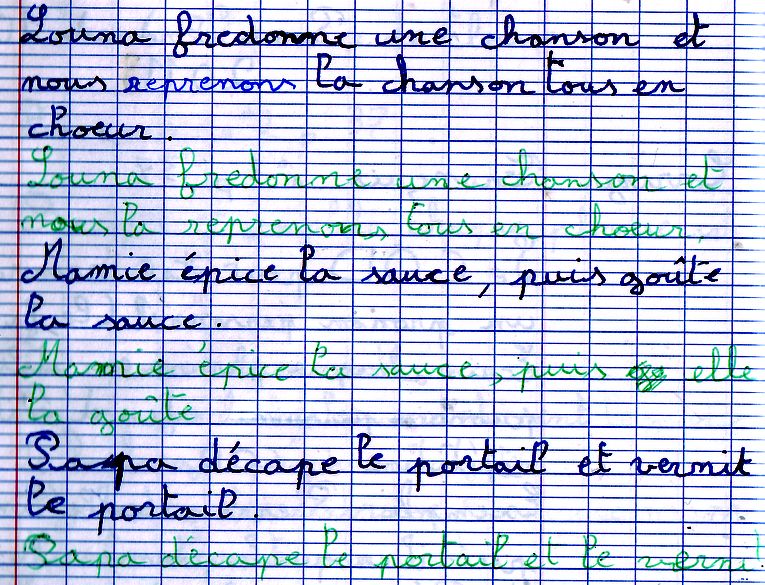 Louna fredonne une chanson et
nous reprenons la chanson tous en
choeur.
Louna fredonne une chanson et
nous la reprenons tous en choeur.
Mamie épice la sauce, puis goûte
la sauce.
Mamie épice la sauce, puis elle
la goûte
Papa décape le portail et vernit
le portail.
Papa décape le portail et le vernit